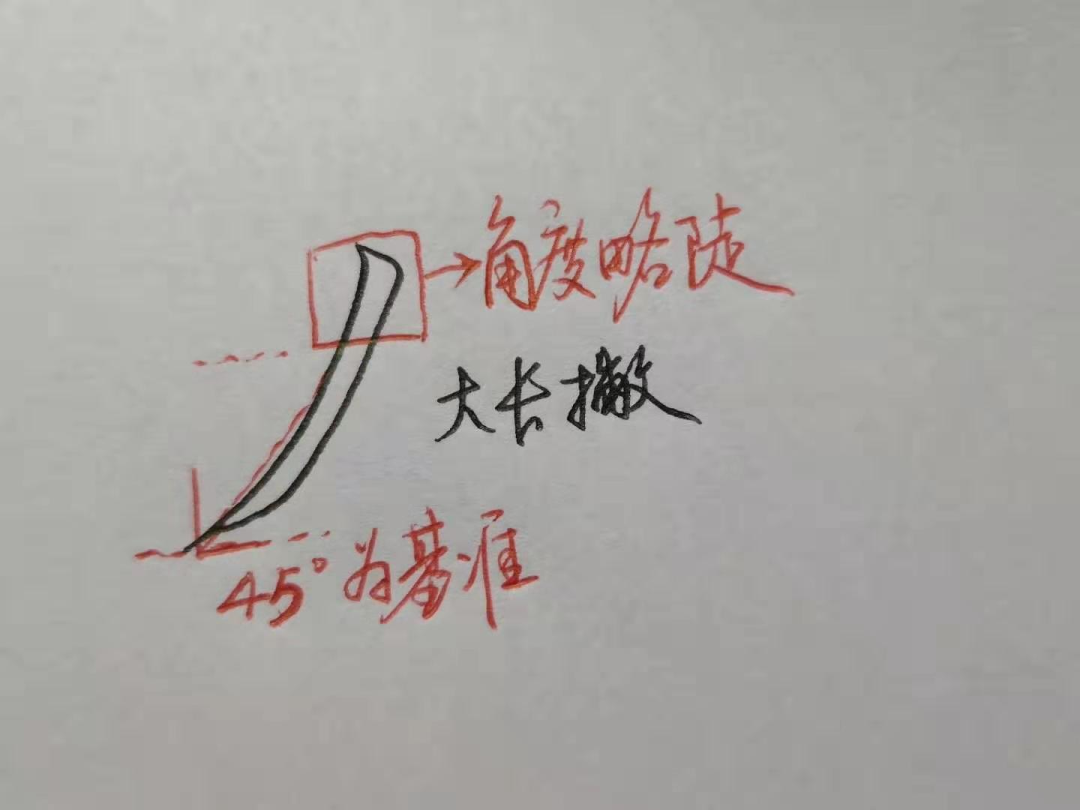 角度略陡
大长撇
45°为基准